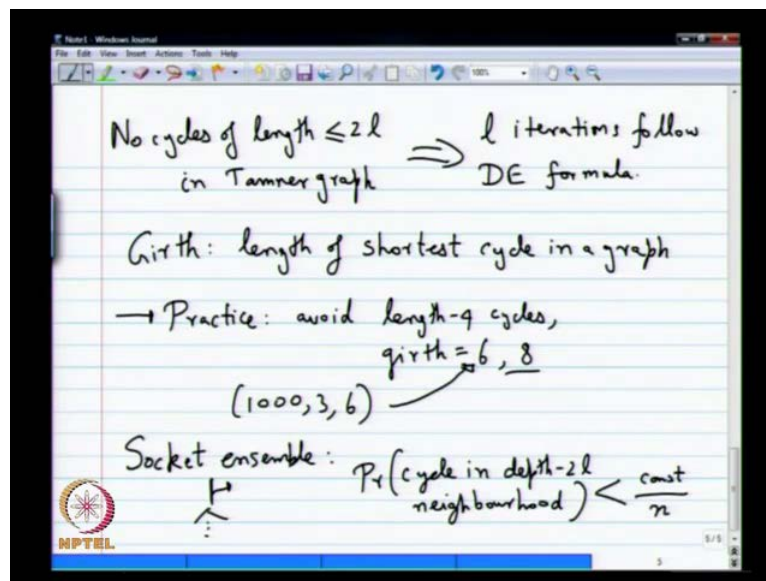 Note1 - Windows Journal
File Edit View Insert Actions Tools Help
100%
No cycles of length ≤ 2l ⇒ l iterations follow
in Tanner graph DE formula.
Girth: length of shortest cycle in a graph
→ Practice: avoid length-4 cycles,
girth = 6, 8
(1000, 3, 6)
Socket ensemble: Pr(cycle in depth-2l
neighbourhood) < const/n
NPTEL
5/5
5